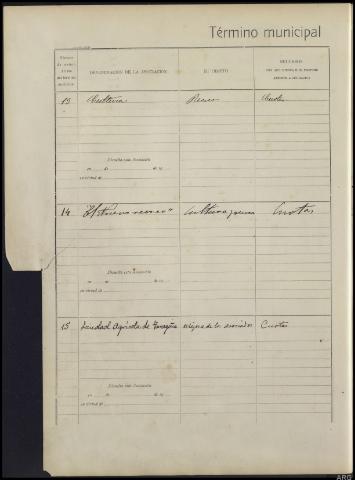 Término municipal
DENOMINACIÓN DE LA ASOCIACIÓN
SU OBJETO
RECURSOS
13 Cultura Recreo Cuotas
Disuelta esta Asociación
en de de 19
en virtud de
14 "El Nuevo recreo" Cultura y recreo Cuotas
Disuelta esta Asociación
en de de 19
en virtud de
15 Sociedad Agrícola de mejora de los asociados Cuotas
Disuelta esta Asociación
en de de 19
en virtud de
ARG